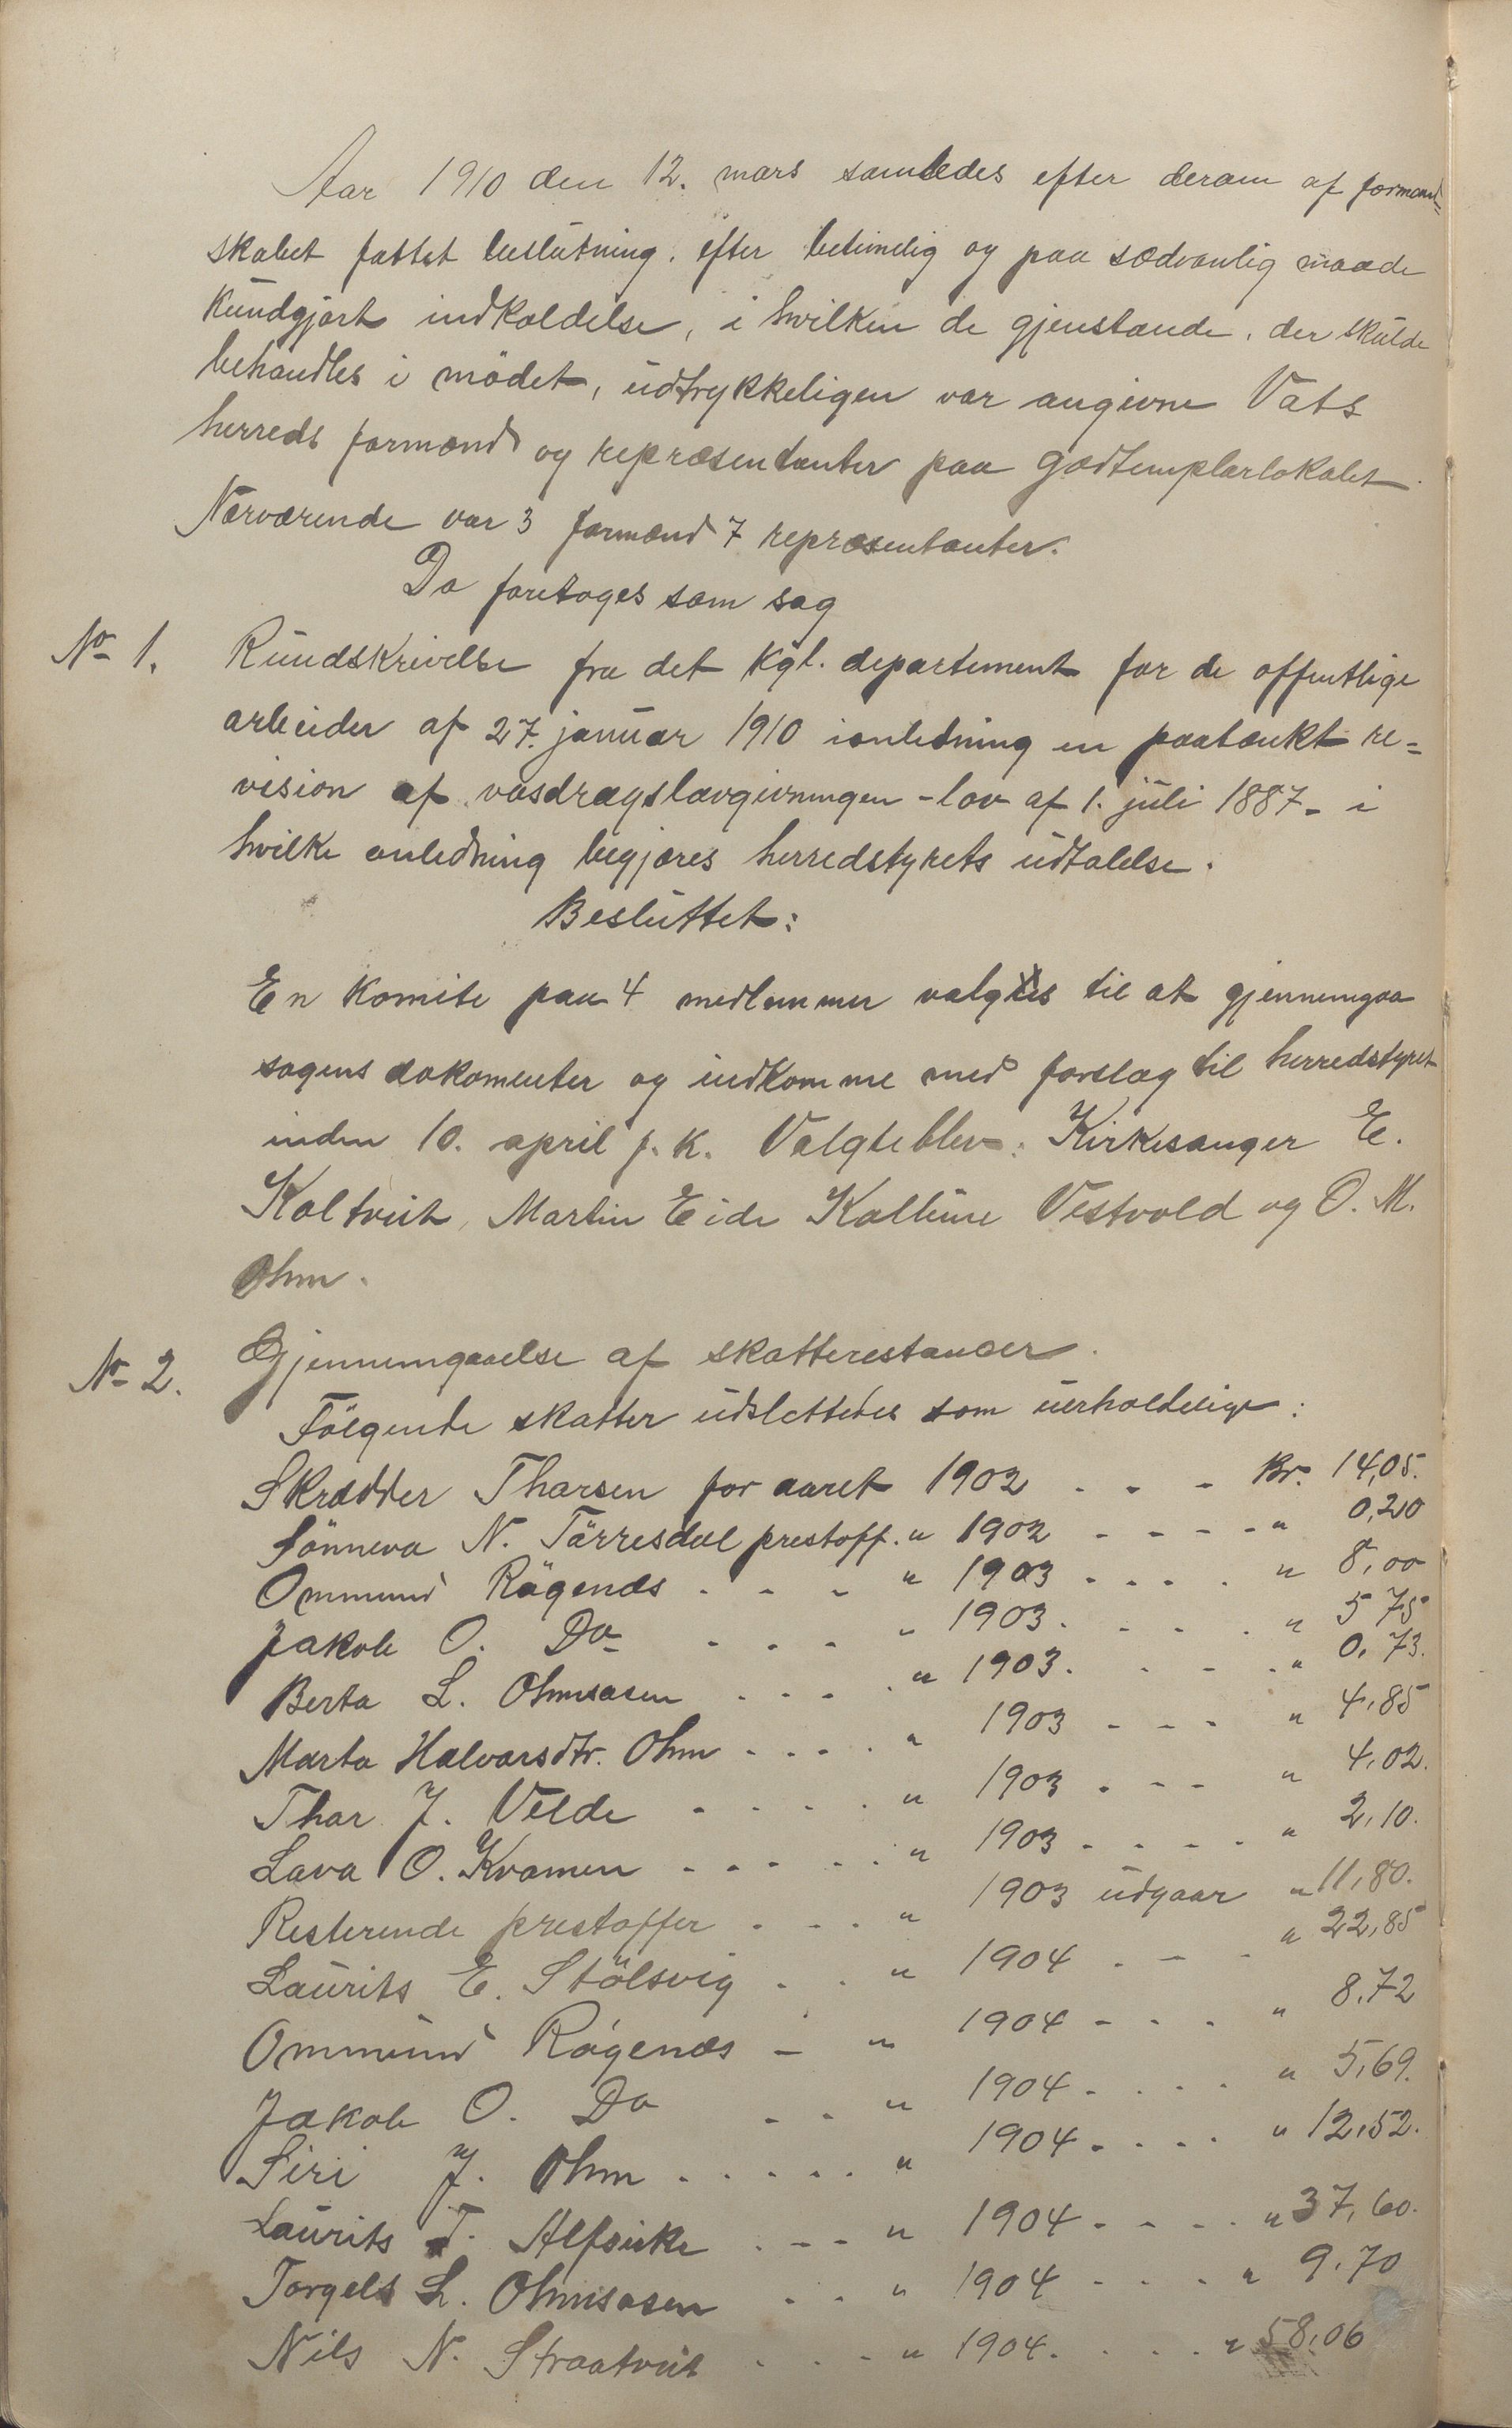 Aar 1910 den 12. mars samledes efter derom af formand=
skabet fattet beslutning, efter betimelig og paa sædvanlig maade
kundgjort indkaldelse, i hvilken de gjenstande, der skulde
behandles i mødet, udtrykkeligen var angivne Vats
herreds formænd og repræsentanter paa godtemplarlokalet.
Nærværende var 3 formænd 7 repræsentanter.
Da foretoges som sag
No 1. Rundskrivelse fra det kgl. departement for de offentlige
arbeider af 27. januar 1910 ianledning en paatænkt re=
vision af vasdragslovgivningen - lov af 1. juli 1887 - i
hvilke anledning begjæres herredstyrets udtalelse.
Besluttet:
En komite paa 4 medlemmer valgtes til at gjennemgaa
sagens dokomenter og indkomme med forslag til herredstyret
inden 10. april f. k. Valgte blev: Kirkesanger E.
Koltveit, Martin Eide Kolbeine Vestvold og O. M.
Ohm.
No 2. Gjennemgaaelse af skatterestancer.
Følgende skatter udslettedes som uerholdelige:
Skrædder Thorsen for aaret 1902 . . - Kr. 14,05.
Sönneva N. Törresdal prestoff. " 1902 - - - - " 0,20
Ommund Rögenes . - - " 1903 - . . . " 8,00
Jakob O. Do - . . . " 1903. . - . " 5 75
Berta L. Ohmsasen . . . . " 1903. . - . " 0,73.
Marta Halvorsdtr. Ohm - . . . " 1903 - - - " 4,85
Thor J. Velde . . . . " 1903 . - - " 4,02.
Lava O. Kvamen - - - . . " 1903 - . . . " 2,10.
Resterende prestoffer . . . " 1903 udgaar " 11,80.
Laurits E. Stölsvig . . " 1904 . - . " 22,85
Ommund Rögenes - " 1904 - . . " 8,72
Jakob O. Do . . " 1904 - . . . " 5,69.
Siri J. Ohm . . . . . " 1904 - . . . " 12,52.
Laurits T. Alfseike . - - " 1904 - . - . " 37,60.
Torgels L. Ohmsasen . . " 1904 - . . . " 9,70
Nils N. Straatveit . . . " 1904. . . . " 58,06